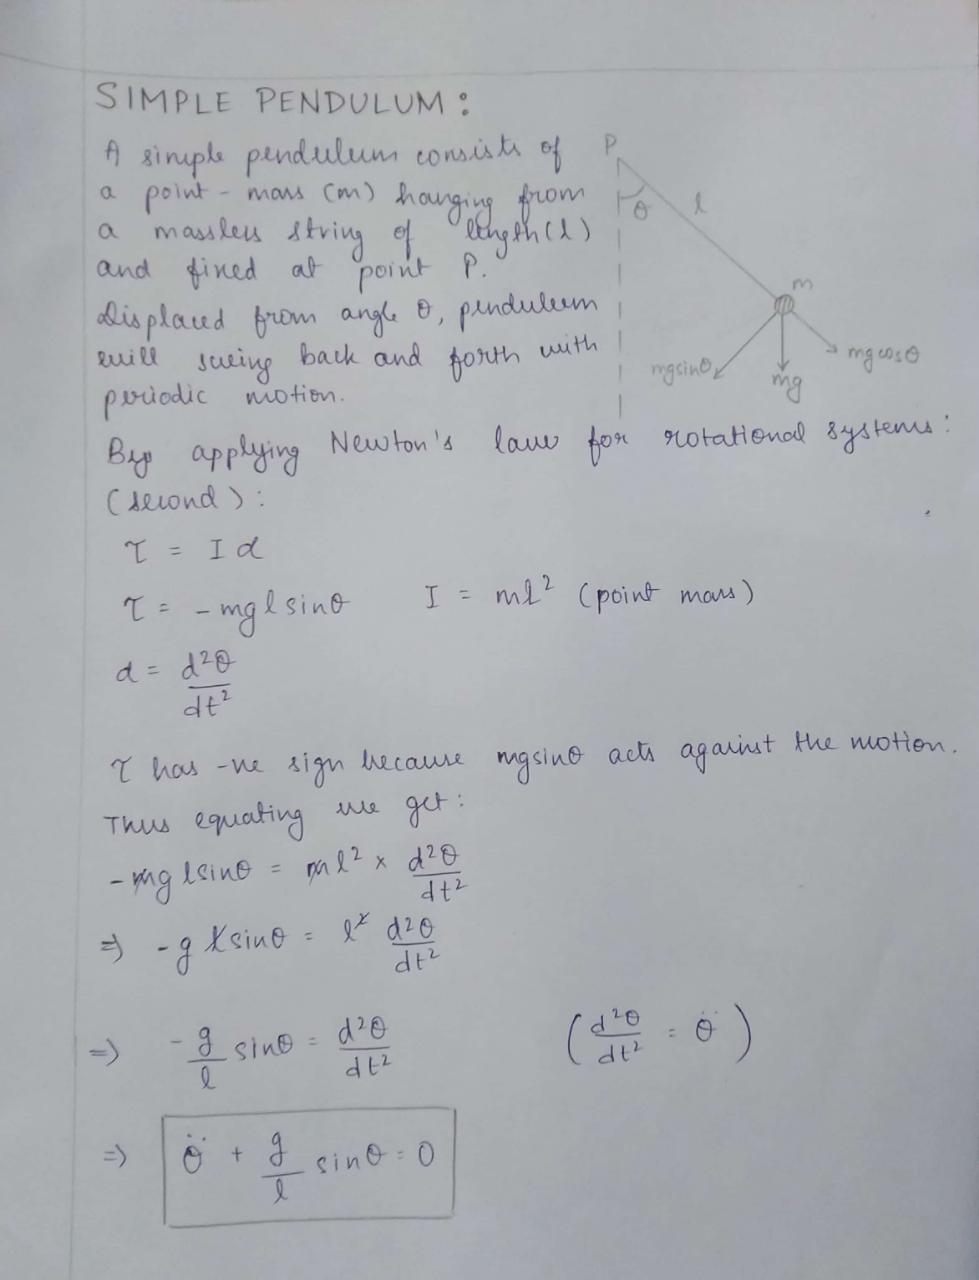 SIMPLE PENDULUM:
A simple pendulum consists of
a point-mass (m) hanging from
a massless string of length(l)
and fixed at point P.
Displaced from angle θ, pendulum
will swing back and forth with
periodic motion.
P
θ
l
m
mgsinθ
mg
mgcosθ
By applying Newton's law for rotational systems:
(second):
τ = Iα
τ = -mglsinθ I = ml² (point mass)
α = d²θ/dt²
τ has -ve sign because mgsinθ acts against the motion.
Thus equating we get:
-mglsinθ = ml² × d²θ/dt²
⇒ -glsinθ = l² d²θ/dt²
⇒ -g/l sinθ = d²θ/dt² (d²θ/dt² = θ̈)
⇒ θ̈ + g/l sinθ = 0